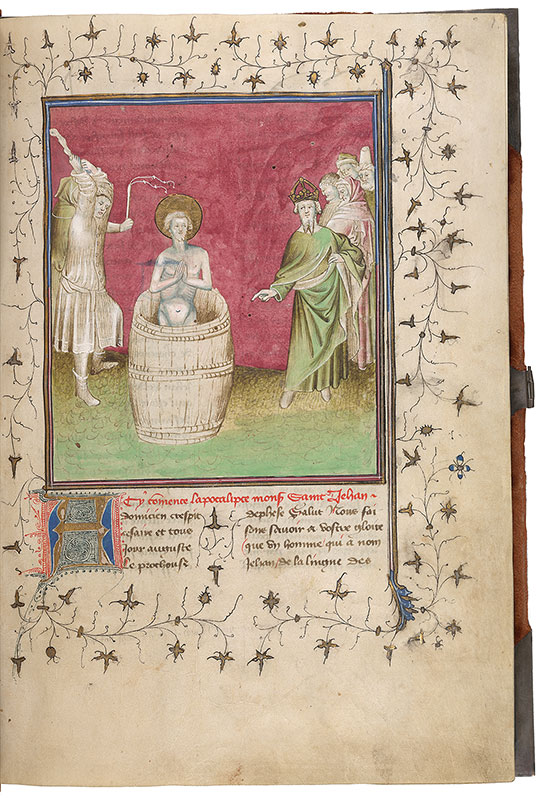 Cy comence lapocalipce mons Saint Jehan
A domicien crespit
cesaire et tous
Jour auguste
Le prothouse
dephese Salut Nous fai
sons savoir a vostre gloire
que un homme qui a nom
Jehan de la lingne des